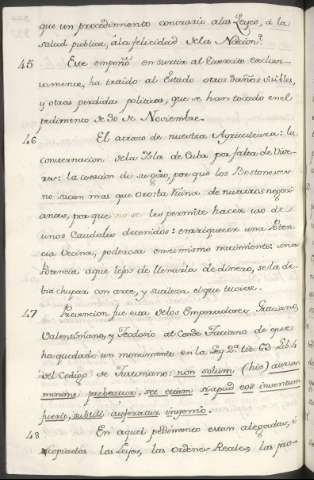 que un procedimiento contrario a las Leyes, á la
salud publica, á la felicidad de la Nacion?
45 Este empeño en surtir al Exercito exclusi-
vamente, ha traido al Estado otros daños visibles,
y otras perdidas politicas, que se han tocado en el
pedimento de 30 de Noviembre.
46 El atraso de nuestra Agricultura: la
consternacion de la Isla de Cuba por falta de Vive-
res: la de que los Bostoneses
no sacan mas que oro: la ruina de nuestros negoci-
antes, porque no se les permitte hacer uso de
unos Caudales detenidos: enriquecer una Poten-
cia Vecina, poderosa en su mismo nacimiento: una
Potencia a que lejos de llenarla de dinero, se la de-
bia chupar con arte, y sutileza el que tuviese.
47 Prevencion fue esta de los Emperadores, Graciano,
Valentiniano, y Teodosio al Conde Taciano de que
ha quedado un monumento en la Ley 2ª tit. 63 Lib. 4
del Codigo de Justiniano: non solum (his) aurum
minime prebeatur, set etiam si apud eos inventum
fuerit, subtili auferatur ingenio.
48 En aquel pedimento estan alegadas, y
copiadas las Leyes, las ordenes Reales, las pro-